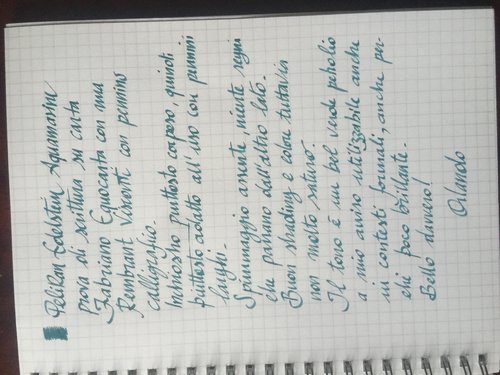 Pelikan Edelstein Aquamarine
prova di scrittura su carta
Fabriano Ecoqua con una
Rembrandt Visconti con pennino
calligrafico.
Inchiostro piuttosto corposo, quindi
piuttosto adatto all'uso con pennini
larghi.
Spiumaggio assente, niente segni
che passano dall'altro lato.
Buon shading e colore tuttavia
non molto saturo.
Il tono è un bel verde petrolio
a mio avviso utilizzabile anche
in contesti formali, anche per-
ché poco brillante.
Bello davvero!
Orlando